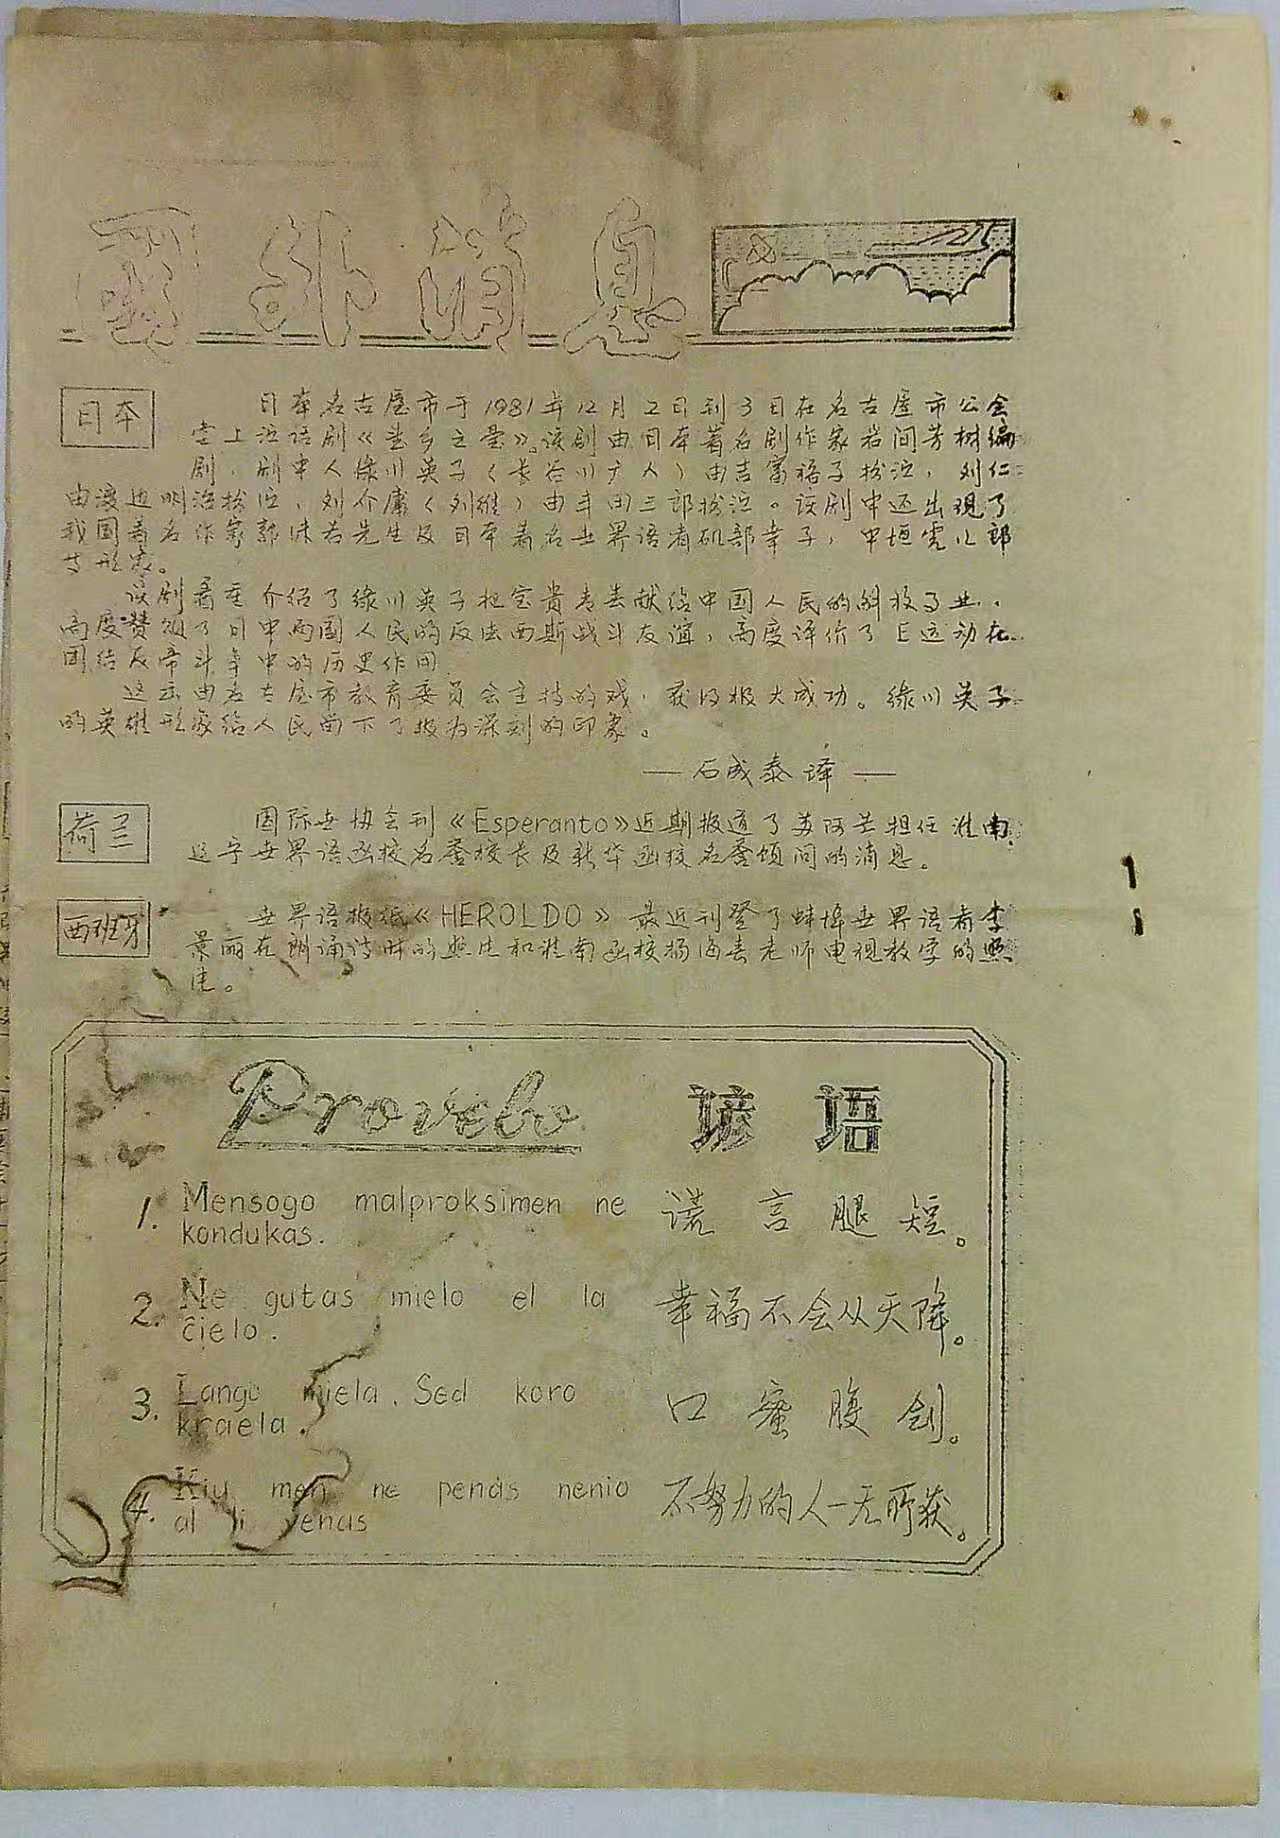 國外消息
日本
日本名古屋市于1981年12月2日到3日在名古屋市公会
堂上演话剧《望乡之星》。该剧由日本著名剧作家若间芳树编
剧，剧中人绿川英子（长谷川 人）由吉富裕子扮演，刘仁
由渡边明治扮演，刘介庸（刘维）由丰田三郎扮演。该剧中还出现了
我国著名作家郭沫若先生及日本著名世界语者矶部幸子，中垣虎儿郎
等形象。
该剧着重介绍了绿川英子把宝贵 献给中国人民的解放事业，
高度赞颂了日中两国人民的反法西斯战斗友谊，高度评价了E运动在
团结反帝斗争中的历史作用
这 由名古屋市教育委员会主持的戏，获得极大成功。绿川英子
的英雄形象给人民留下了极为深刻的印象。
—石成泰译—
荷兰
国际世协会刊《Esperanto》近期报道了 担任淮南
辽宁世界语函校名誉校长及新华函校名誉顾问的消息。
西班牙
世界语报纸《HEROLDO》最近刊登了蚌埠世界语者李
景丽在朗诵诗时的照片和淮南函校杨海春老师电视教学的照
片。
Provebo 谚语
1. Mensogo malproksimen ne 谎言腿短。
kondukas.
2. Ne gutas mielo el la 幸福不会从天降。
ĉielo.
3. Lango miela, Sed koro 口蜜腹剑。
kraela.
4. Kiu men ne penas nenio 不努力的人一无所获。
al li venas